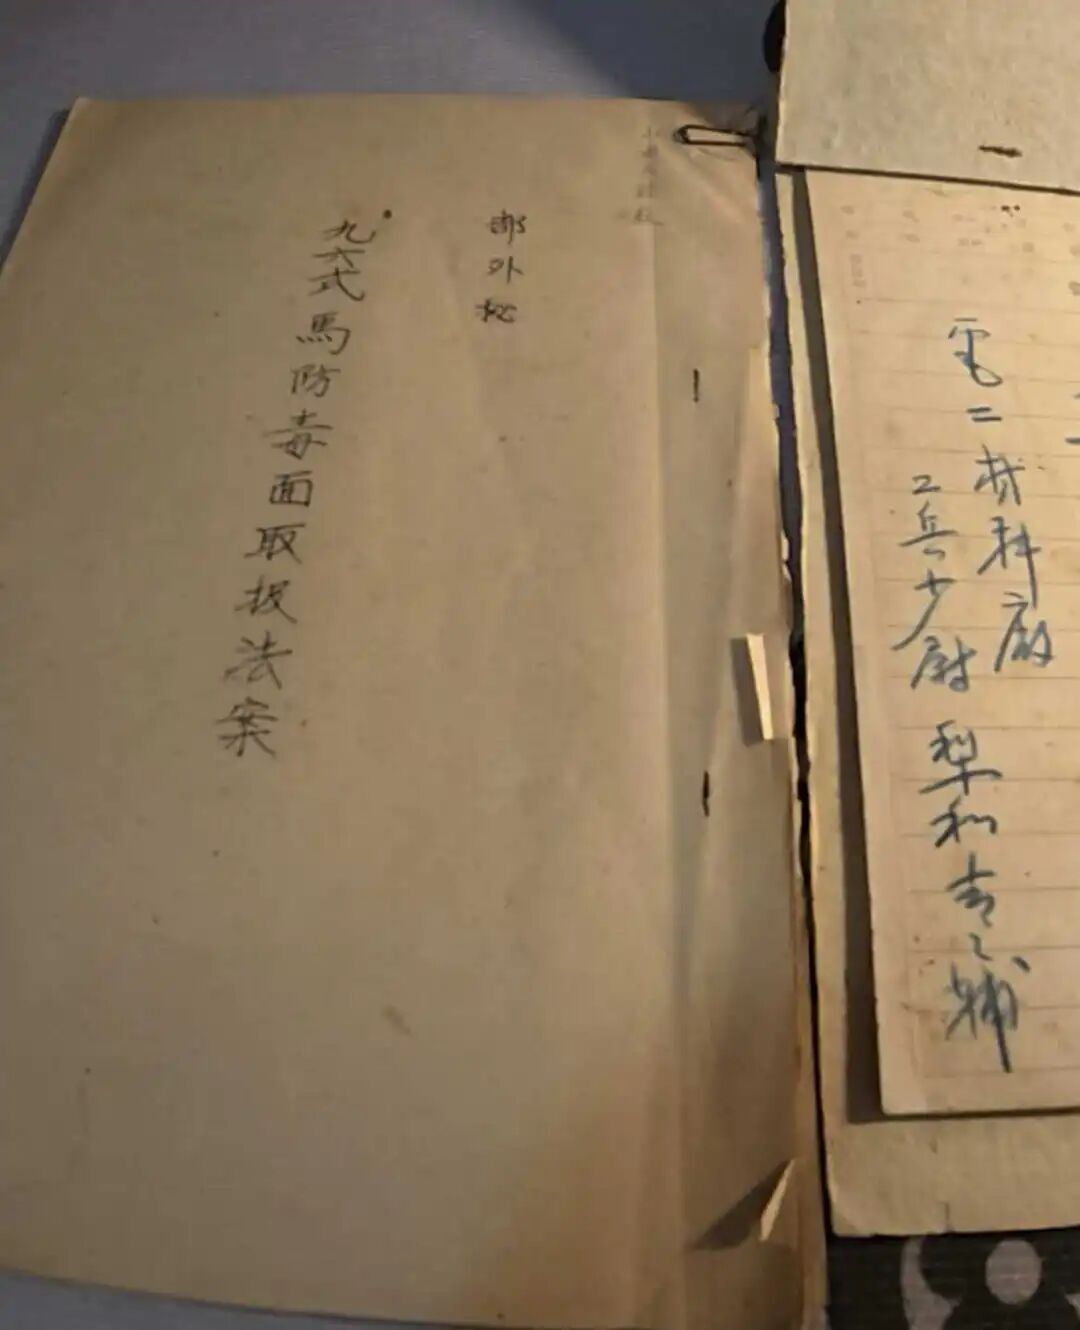 電二材料廠
工兵少尉 梨和吉之輔
部外秘
九六式馬防毒面取扱法案